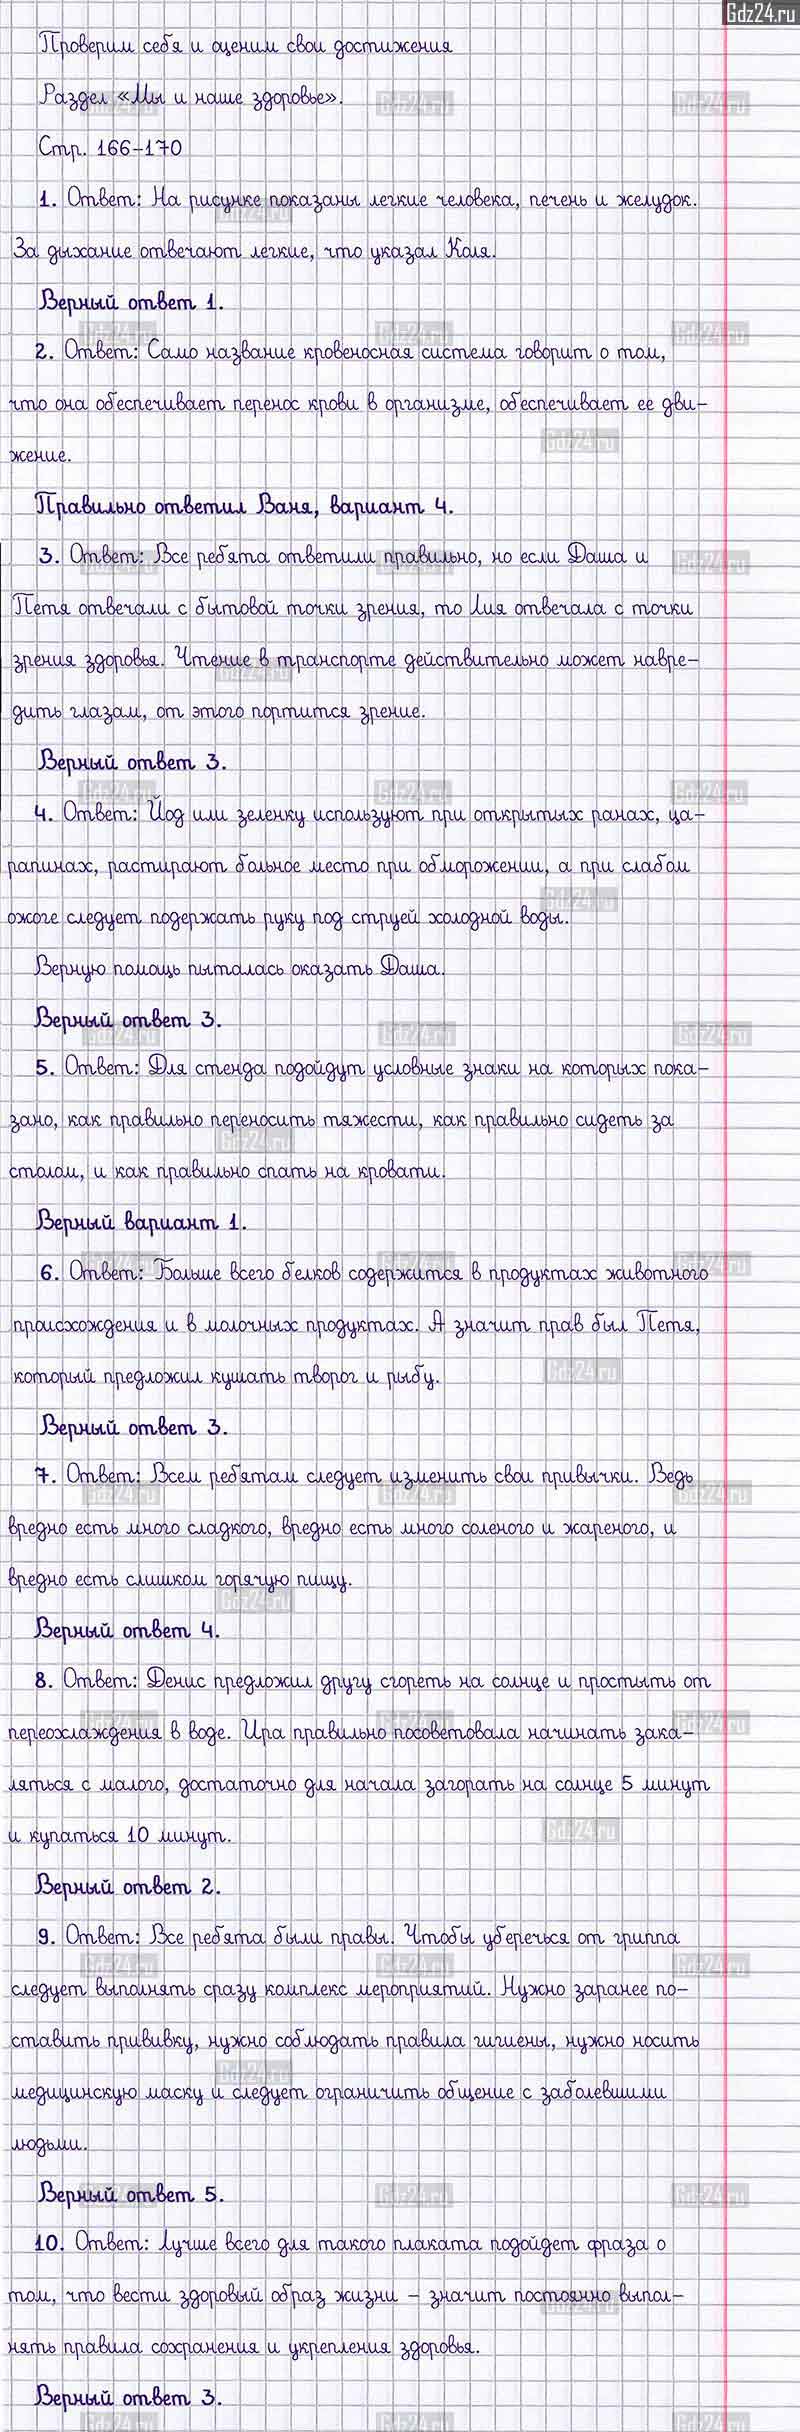 Gdz24.ru
Проверим себя и оценим свои достижения
Раздел «Мы и наше здоровье».
Стр. 166-170
1. Ответ: На рисунке показаны легкие человека, печень и желудок.
За дыхание отвечают легкие, что указал Коля.
Верный ответ 1.
2. Ответ: Само название кровеносная система говорит о том,
что она обеспечивает перенос крови в организме, обеспечивает ее дви-
жение.
Правильно ответил Ваня, вариант 4.
3. Ответ: Все ребята ответили правильно, но если Даша и
Петя отвечали с бытовой точки зрения, то Лия отвечала с точки
зрения здоровья. Чтение в транспорте действительно может навре-
дить глазам, от этого портится зрение.
Верный ответ 3.
4. Ответ: Йод или зеленку используют при открытых ранах, ца-
рапинах, растирают больное место при обморожении, а при слабом
ожоге следует подержать руку под струей холодной воды.
Верную помощь пыталась оказать Даша.
Верный ответ 3.
5. Ответ: Для стенда подойдут условные знаки на которых пока-
зано, как правильно переносить тяжести, как правильно сидеть за
столом, и как правильно спать на кровати.
Верный вариант 1.
6. Ответ: Больше всего белков содержится в продуктах животного
происхождения и в молочных продуктах. А значит прав был Петя,
который предложил кушать творог и рыбу.
Верный ответ 3.
7. Ответ: Всем ребятам следует изменить свои привычки. Ведь
вредно есть много сладкого, вредно есть много соленого и жареного, и
вредно есть слишком горячую пищу.
Верный ответ 4.
8. Ответ: Денис предложил другу сгореть на солнце и простыть от
переохлаждения в воде. Ира правильно посоветовала начинать зака-
ляться с малого, достаточно для начала загорать на солнце 5 минут
и купаться 10 минут.
Верный ответ 2.
9. Ответ: Все ребята были правы. Чтобы уберечься от гриппа
следует выполнять сразу комплекс мероприятий. Нужно заранее по-
ставить прививку, нужно соблюдать правила гигиены, нужно носить
медицинскую маску и следует ограничить общение с заболевшими
людьми.
Верный ответ 5.
10. Ответ: Лучше всего для такого плаката подойдет фраза о
том, что вести здоровый образ жизни - значит постоянно выпол-
нять правила сохранения и укрепления здоровья.
Верный ответ 3.